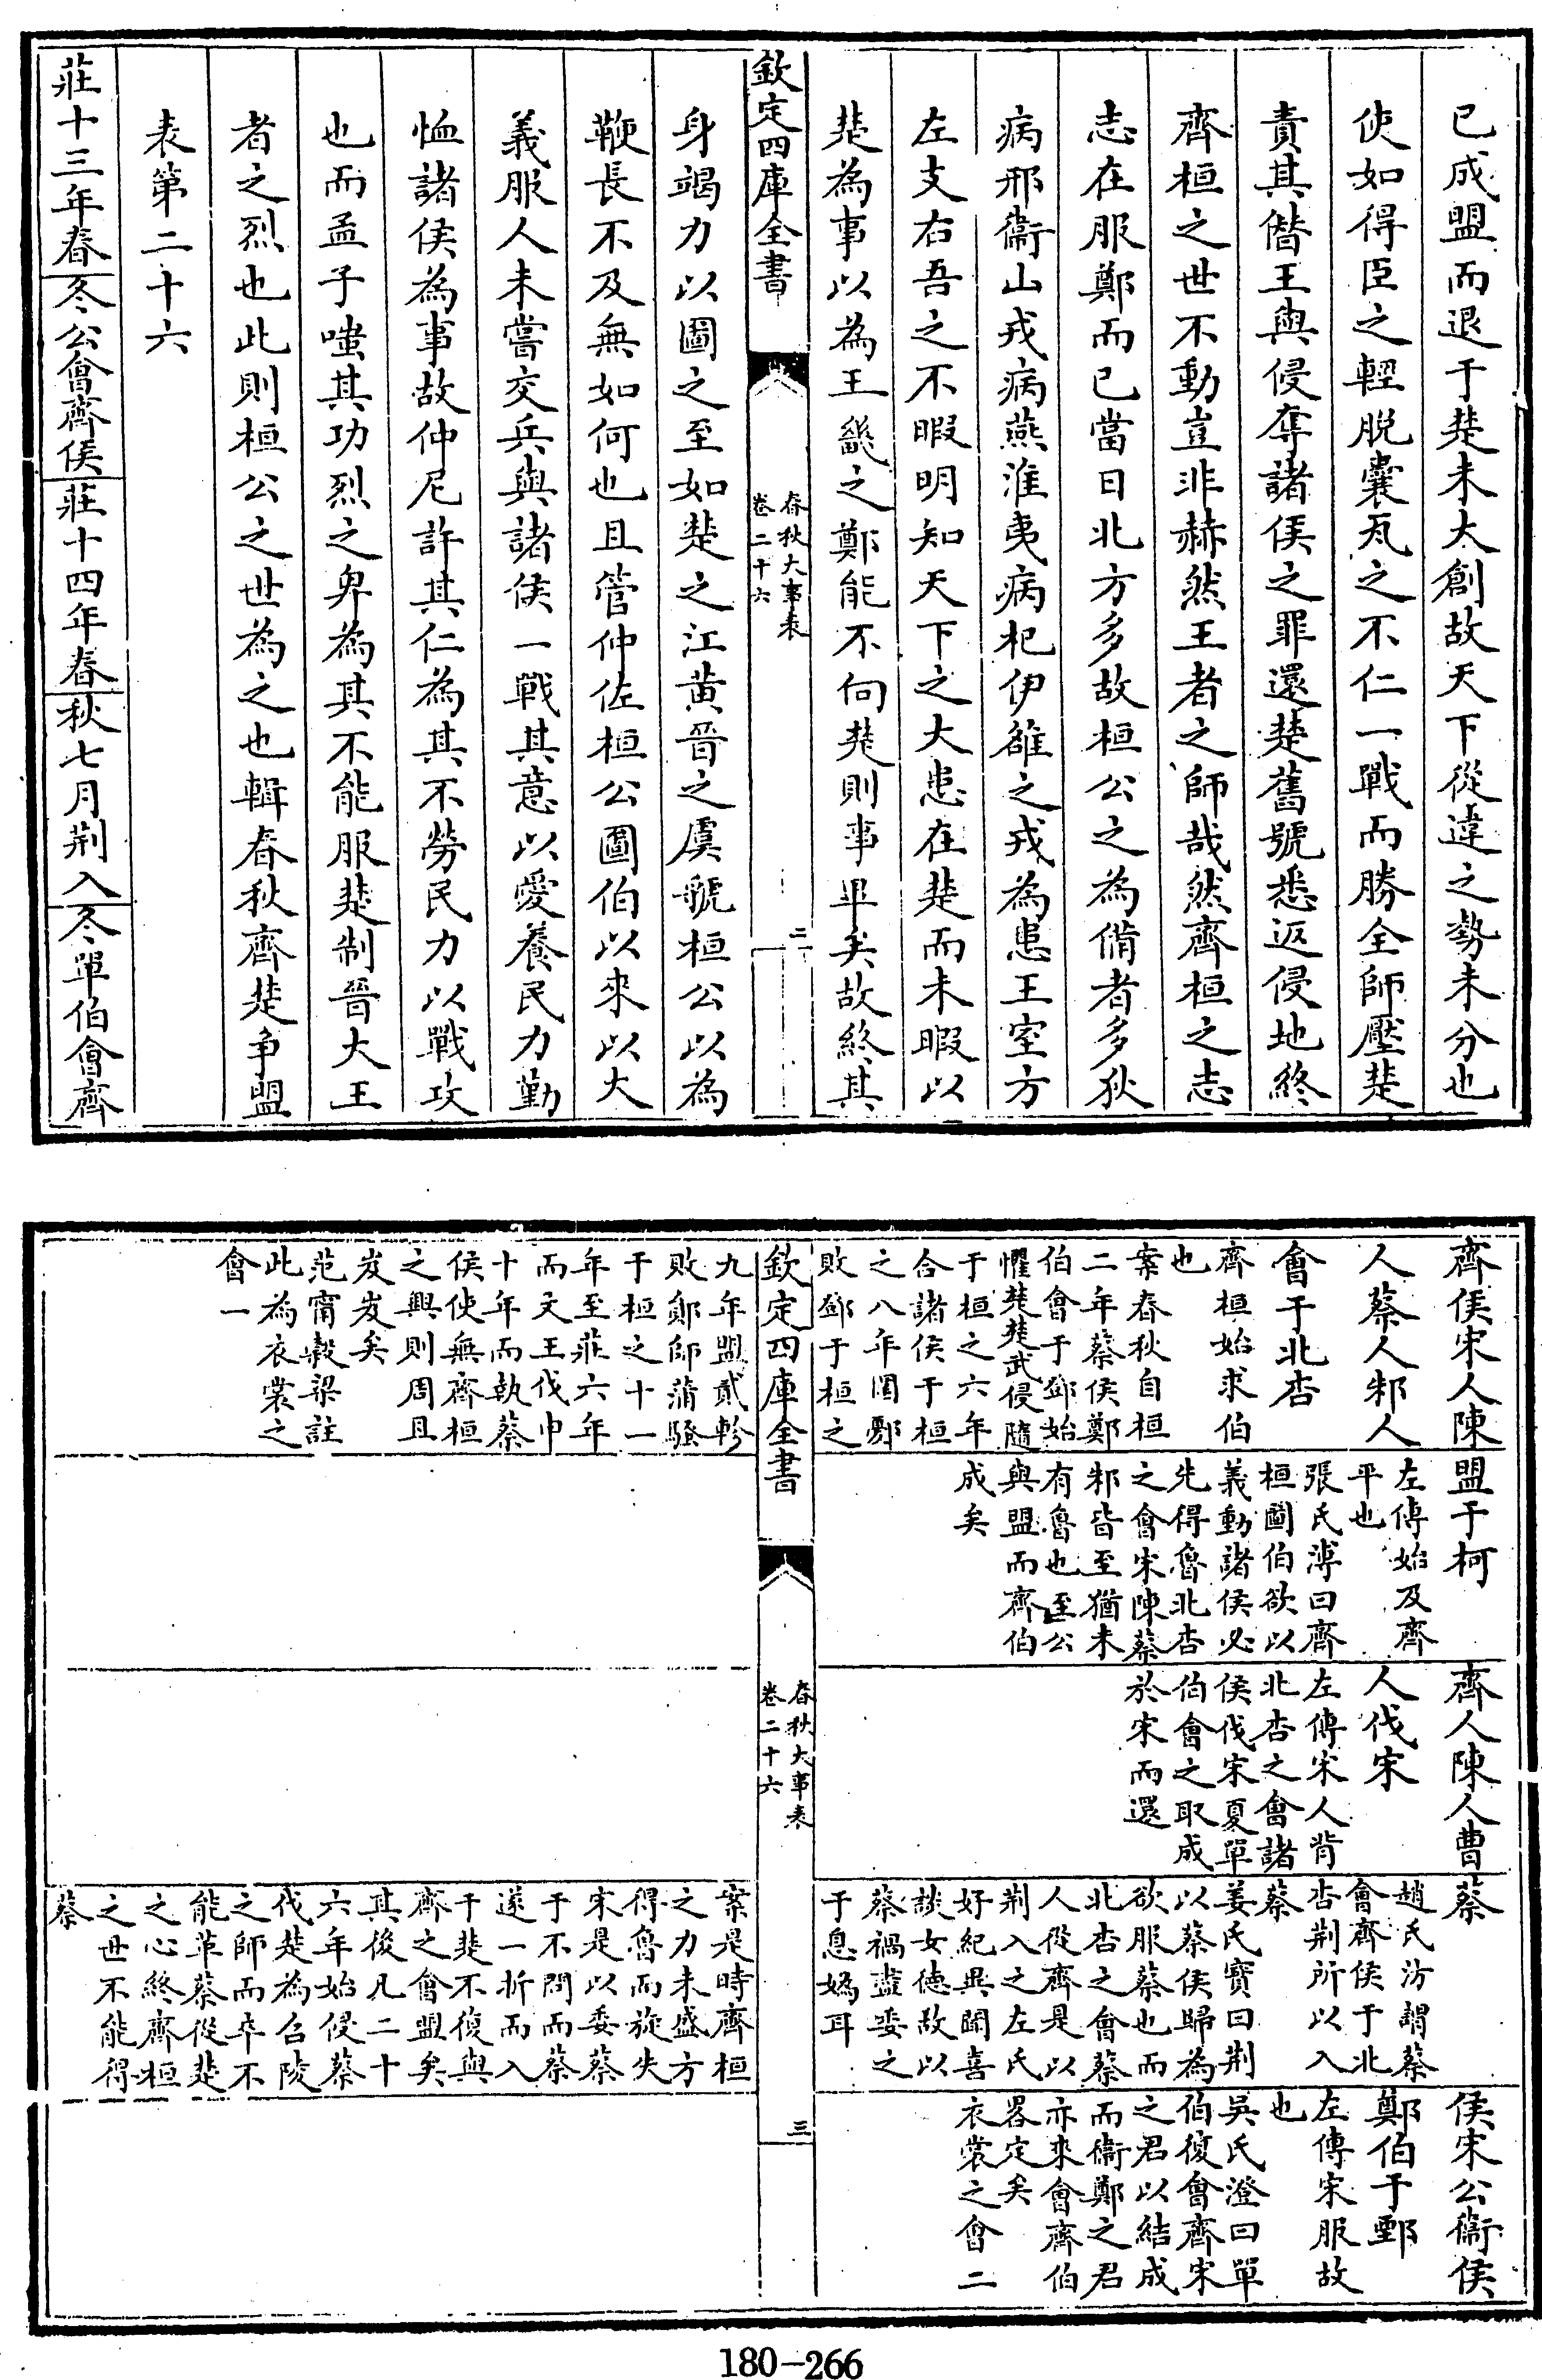 已成盟而退于楚未大創故天下從違之勢未分也
使如得臣之輕脫囊瓦之不仁一戰而勝全師壓楚
責其僭王與侵奪諸侯之罪還楚舊號悉返侵地終
齊桓之世不動豈非赫然王者之師哉然齊桓之志
志在服鄭而已當日北方多故桓公之為備者多狄
病邢衞山戎病燕淮夷病杞伊雒之戎為患王室方
左支右吾之不暇明知天下之大患在楚而未暇以
楚為事以為王畿之鄭能不向楚則事畢矣故終其
欽定四庫全書
春秋大事表
卷二十六
二
身竭力以圖之至如楚之江黃晉之虞虢桓公以為
鞭長不及無如何也且管仲佐桓公圖伯以來以大
義服人未嘗交兵與諸侯一戰其意以愛養民力勤
恤諸侯為事故仲尼許其仁為其不勞民力以戰攻
也而孟子嗤其功烈之卑為其不能服楚制晉大王
者之烈也此則桓公之世為之也輯春秋齊楚争盟
表第二十六
莊十三年春
冬公會齊侯
莊十四年春
秋七月荆入
冬單伯會齊
齊侯宋人陳
人蔡人邾人
會于北杏
齊桓始求伯
也
案春秋自桓
二年蔡侯鄭
伯會于鄧始
懼楚楚武侵隨
于桓之六年
合諸侯于桓
之八年圍鄾
敗鄧于桓之
盟于柯
左傳始及齊
平也
張氏溥曰齊
桓圖伯欲以
義動諸侯必
先得魯北杏
之會宋陳蔡
邾皆至猶未
有魯也至公
與盟而齊伯
成矣
齊人陳人曹
人伐宋
左傳宋人背
北杏之會諸
侯伐宋夏單
伯會之取成
於宋而還
蔡
趙氏汸謂蔡
會齊侯于北
杏荆所以入
蔡
姜氏寶曰荆
以蔡侯歸為
欲服蔡也而
北杏之會蔡
人從齊是以
荆入之左氏
好紀異聞喜
談女德故以
蔡禍盡委之
于息媯耳
侯宋公衞侯
鄭伯于鄄
左傳宋服故
也
吳氏澄曰單
伯復會齊宋
之君以結成
而衞鄭之君
亦來會齊伯
畧定矣
衣裳之會二
欽定四庫全書
春秋大事表
卷二十六
三
九年盟貳軫
敗鄖師蒲騷
于桓之十一
年至莊六年
而文王伐申
十年而執蔡
侯使無齊桓
之興則周且
岌岌矣
范甯穀梁註
此為衣裳之
會一
案是時齊桓
之力未盛方
得魯而旋失
宋是以委蔡
于不問而蔡
遂一折而入
于楚不復與
齊之會盟矣
其後凡二十
六年始侵蔡
伐楚為召陵
之師而卒不
能革蔡從楚
之心終齊桓
之世不能得
蔡
180-266